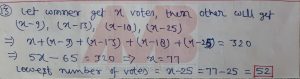 (13) Let winner get x votes, then other will get
(x-9), (x-13), (x-18), (x-25)
⇒ x+(x-9)+(x-13)+(x-18)+(x-25) = 320
⇒ 5x - 65 = 320 ⇒ x = 77
Lowest number of votes = x-25 = 77-25 = 52